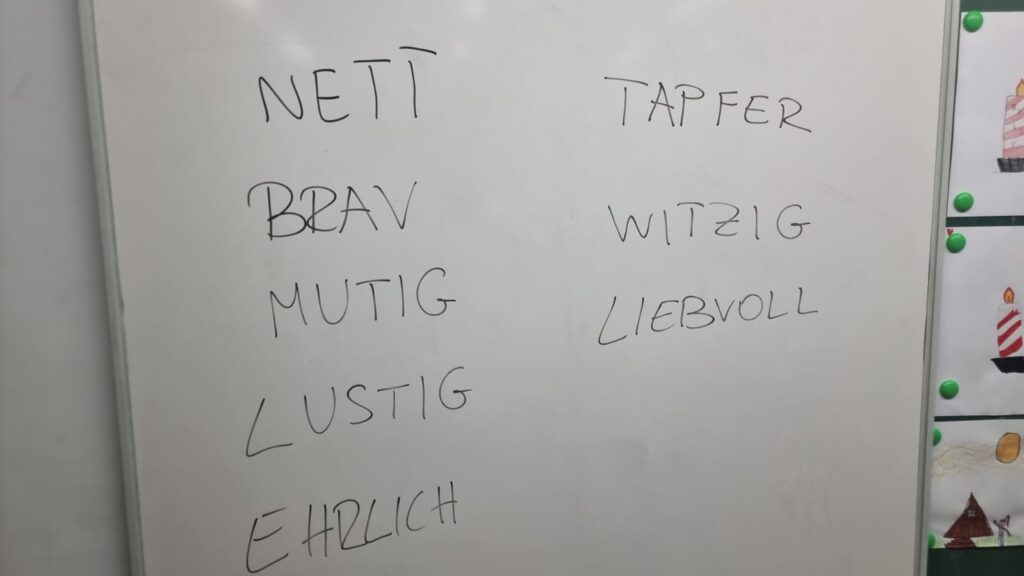 NETT
BRAV
MUTIG
LUSTIG
EHRLICH
TAPFER
WITZIG
LIEBVOLL